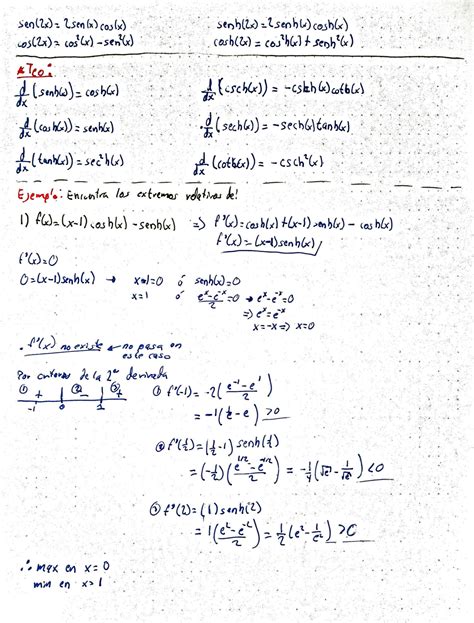 sen(2x) = 2sen(x)cos(x)
senh(2x) = 2senh(x)cosh(x)
cos(2x) = cos²(x) - sen²(x)
cosh(2x) = cos²h(x) + senh²(x)
* Teo:
d/dx (senh(x)) = cosh(x)
d/dx (csch(x)) = -csch(x)coth(x)
d/dx (cosh(x)) = senh(x)
d/dx (sech(x)) = -sech(x)tanh(x)
d/dx (tanh(x)) = sec²h(x)
d/dx (coth(x)) = -csch²(x)
Ejemplo: Encontra los extremos relativos de:
1) f(x) = (x-1)cosh(x) - senh(x) => f'(x) = cosh(x) + (x-1)senh(x) - cosh(x)
f'(x) = (x-1)senh(x)
f'(x) = 0
0 = (x-1)senh(x) → x-1=0 ó senh(x)=0
x=1 ó (e^x - e^-x)/2 = 0 → e^x - e^-x = 0
=> e^x = e^-x
x = -x => x = 0
. f'(x) no existe ← no pasa en
este caso
Por criterio de la 2ª derivada
① + ② - ③ +
-1 0 1
① f'(-1) = -2((e^-1 - e^1)/2)
= -1(1/e - e) > 0
② f'(1/2) = (1/2 - 1) senh(1/2)
= (-1/2)((e^1/2 - e^-1/2)/2) = -1/4(√e - 1/√e) < 0
③ f'(2) = (1)senh(2)
= 1((e² - e^-2)/2) = 1/2(e² - 1/e²) > 0
∴ max en x = 0
min en x = 1